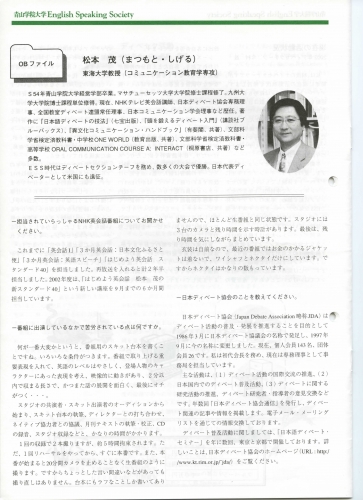 青山学院大学 English Speaking Society
OBファイル
松本 茂（まつもと・しげる）
東海大学教授（コミュニケーション教育学専攻）
S54年青山学院大学経営学部卒業。マサチューセッツ大学大学院修士課程修了。九州大
学大学院博士課程単位修得。現在、NHKテレビ英会話講師、日本ディベート協会専務理
事、全国教室ディベート連盟常任理事、日本コミュニケーション学会理事など歴任。著
作に「日本語ディベートの技法」（七宝出版）、「頭を鍛えるディベート入門」（講談社ブ
ルーバックス）、「異文化コミュニケーション・ハンドブック」（有斐閣、共著）、文部科
学省検定済教科書・中学校ONE WORLD（教育出版、共著）、文部科学省検定済教科書・
高等学校ORAL COMMUNICATION COURSE A: INTERACT（桐原書店、共著）など
多数。
ESS時代はディベートセクションチーフを務め、数多くの大会で優勝。日本代表ディ
ベーターとして米国にも遠征。
－担当されていらっしゃるNHK英会話番組についてお聞かせ
ください。
これまでに「英会話I」「3か月英会話：日本文化ふるさと
便」「3か月英会話：英語スピーチ」「はじめよう英会話 ス
タンダード40」を担当しました。再放送を入れると計2年半
担当しました。2002年度は、「はじめよう英会話 松本 茂の
新スタンダード40」という新しい講座を9月までの6か月間
担当しています。
－番組に出演しているなかで苦労されている点は何ですか。
何が一番大変かというと、番組用のスキット台本を書くこ
とですね。いろいろな条件がつきます。番組で取り上げる重
要表現を入れて、英語のレベルはやさしく、登場人物のキャ
ラクターにあった表現を考え、映像的に動きがあり、2分以
内で収まる長さで、かつまた話の展開を面白く、最後にオチ
がつく・・・。
スタジオの共演者・スキット出演者のオーディションから
始まり、スキット台本の執筆、ディレクターとの打ち合わせ、
ネイティブ協力者との協議、月刊テキストの執筆・校正、CD
の録音、スタジオ収録などと、かなりの時間がかかります。
1回の収録で2本撮りますが、約5時間拘束されます。た
だ、1回リハーサルをやってから、すぐに本番です。また、本
番が始まると20分間カメラを止めることなく生番組のように
撮ります。ですからちょっとした言い間違いなどがあっても
撮り直しはありません。台本にもラフなことしか書いてあり
ませんので、ほとんど生番組と同じ状態です。スタジオには
3台のカメラと残り時間を示す時計があります。最後は、残
り時間を気にしながらまとめています。
衣装は自前なので、最近の番組ではお金のかかるジャケッ
トは着ないで、ワイシャツとネクタイだけにしています。で
すからネクタイはかなりの数もっています。
－日本ディベート協会のことを教えてください。
日本ディベート協会（Japan Debate Association 略称JDA）は
ディベート活動の普及・発展を推進することを目的として
1986年3月に日本ディベート協議会の名称で発足し、1997年
9月に今の名称に変更しました。現在、個人会員143名、団体
会員26です。私は初代会長を務め、現在は専務理事として事
務局を担当しています。
主な活動は、（1）ディベート活動の国際交流の推進、（2）
日本国内でのディベート普及活動、（3）ディベートに関する
研究活動の推進、ディベート研究者・指導者の意見交換など
です。年数回「日本ディベート協会通信」を発行し、ディベー
ト関連の記事や情報を掲載します。電子メール・メーリング
リストを通じての情報交換しております。
ディベート普及活動に関しましては、「日本語ディベート・
セミナー」を年に数回、東京と京都で開催しております。詳
しいことは、日本ディベート協会のホームページ（URL: http:/
/www.kt.rim.or.jp/˜jda/）をご覧ください。